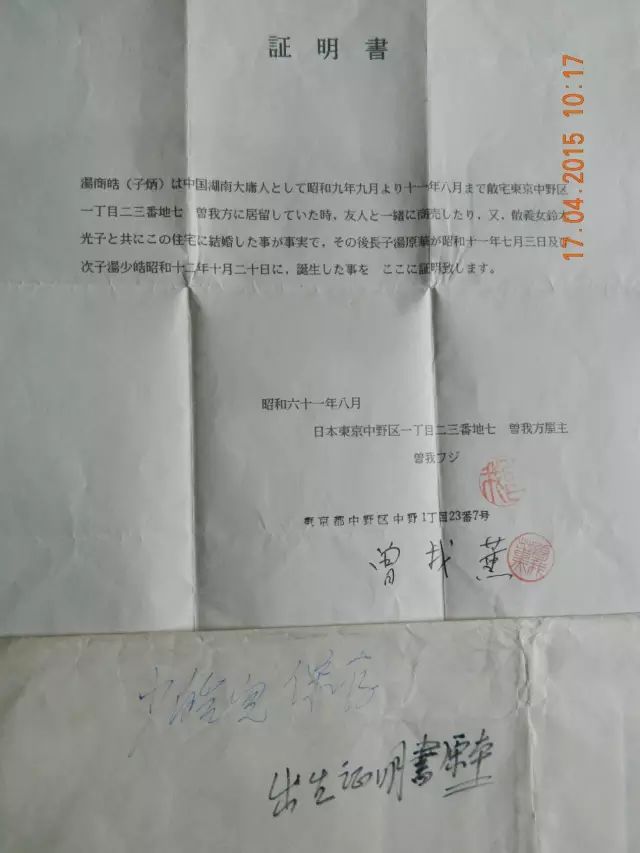 証明書
17.04.2015 10:17
湯商皓（子炳）は中国湖南大庸人として昭和九年九月より十一年八月まで敝宅東京中野区
一丁目二三番地七　曽我方に居留していた時，友人と一緒に商売したり，又，敝義女鈴木
光子と共にこの住宅に結婚した事が事実で，その後長子湯原華が昭和十一年七月三日及び
次子湯少皓昭和十二年十月二十日に，誕生した事を　ここに証明致します。
昭和六十一年八月
日本東京中野区一丁目二三番地七　曽我方屋主
曽我フジ
東京都中野区中野1丁目23番7号
曽我
少皓兒保存
出生证明書原本